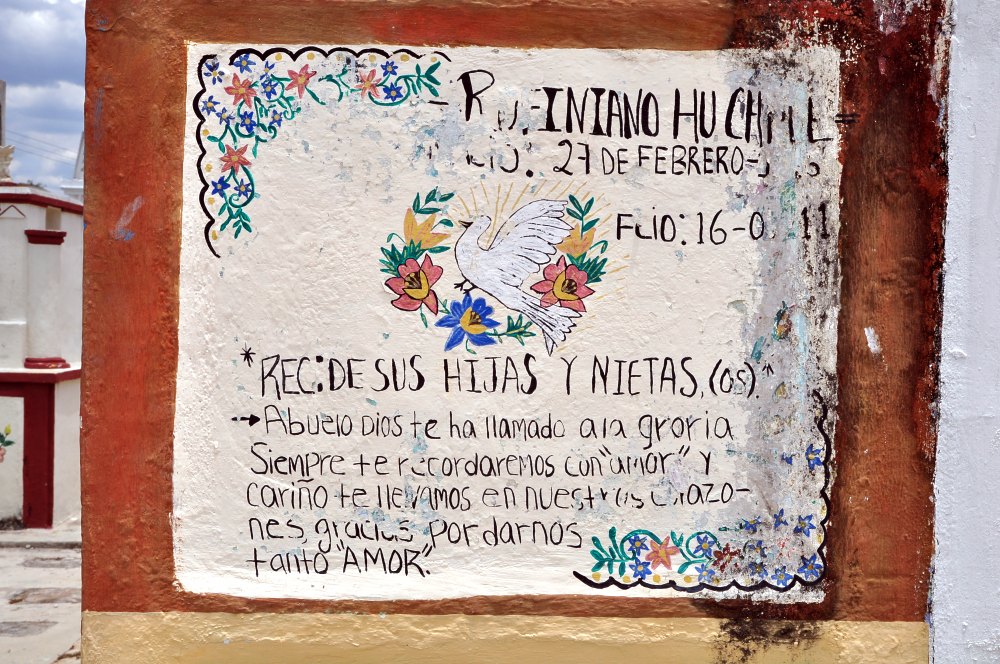 HU
27 DE FEBRERO-
FCIO: 16-0 11
*REC: DE SUS HIJAS Y NIETAS, (OS)."
→Abuelo Dios te ha llamado a la groria
Siempre te recordaremos con "amor" y
cariño te llevamos en nuestros corazo-
nes, gracias por darnos
tanto "AMOR".